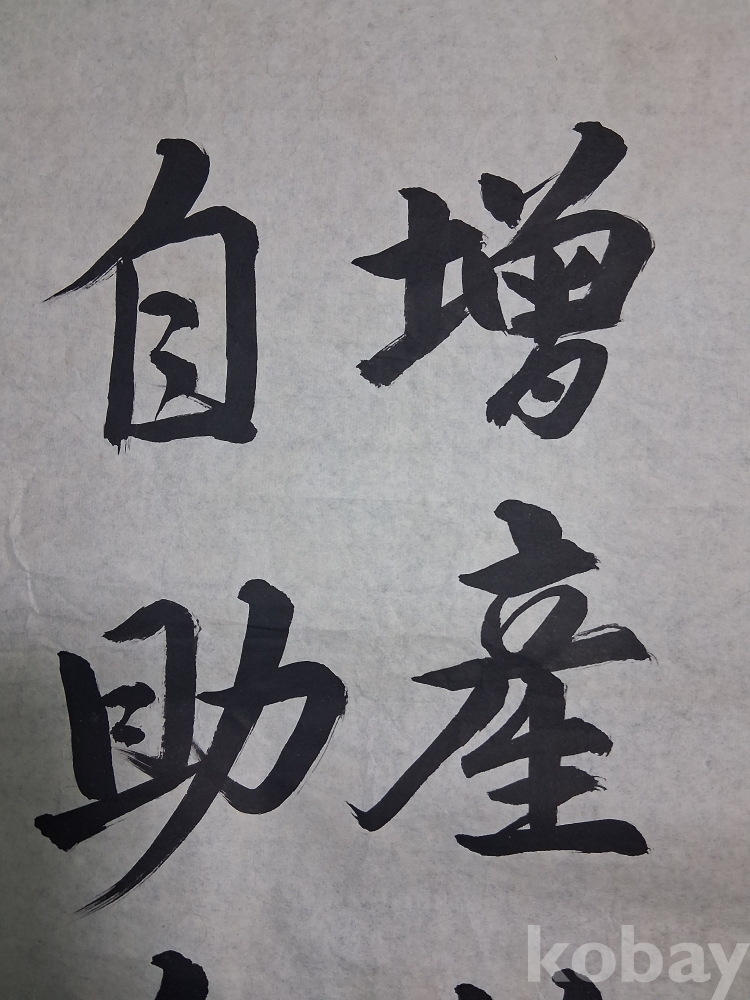 增產
自助
kobay